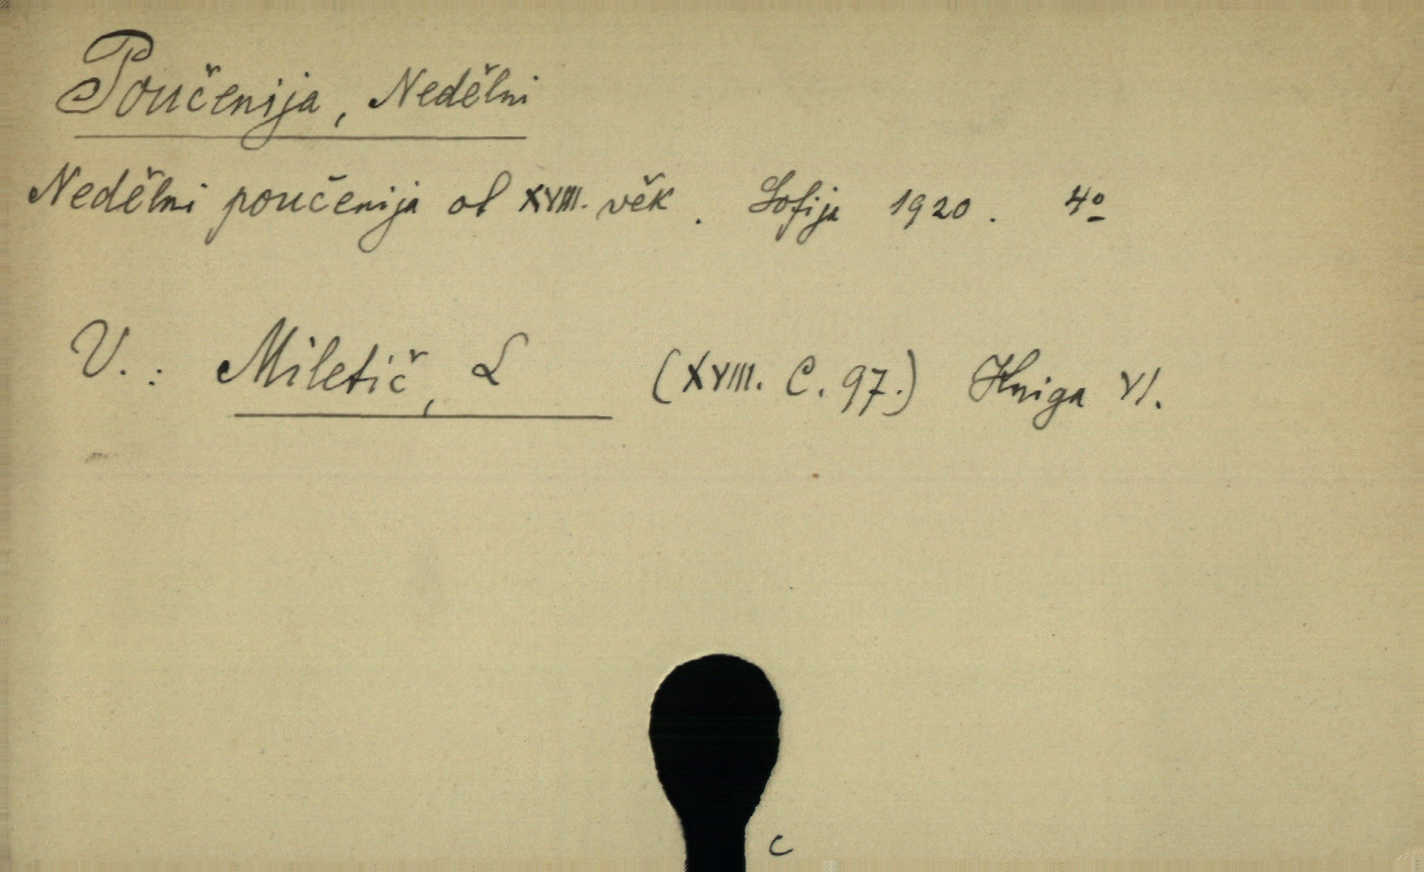 Poučenija, Nedělni
Nedělni poučenija ot XVIII. věk. Sofija 1920. 4º
V.: Miletič, L (XVIII. C. 97.) Kniga VI.
C